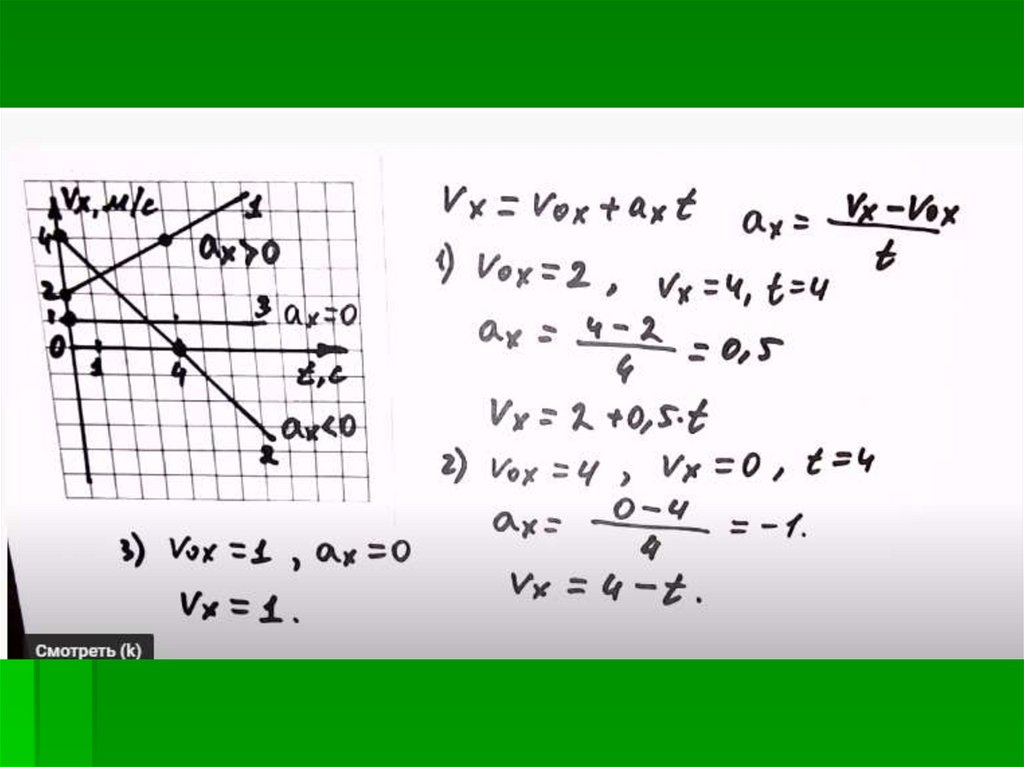 Vx, м/с
1
4
ax>0
2
3 ax=0
1
0
1 4 t, c
ax<0
2
Vx = V0x + axt
ax = (Vx – V0x)/t
1) V0x = 2, Vx = 4, t = 4
ax = (4 – 2)/4 = 0,5
Vx = 2 + 0,5·t
2) V0x = 4, Vx = 0, t = 4
ax = (0 – 4)/4 = –1.
Vx = 4 – t.
3) V0x = 1, ax = 0
Vx = 1.
Смотреть (k)